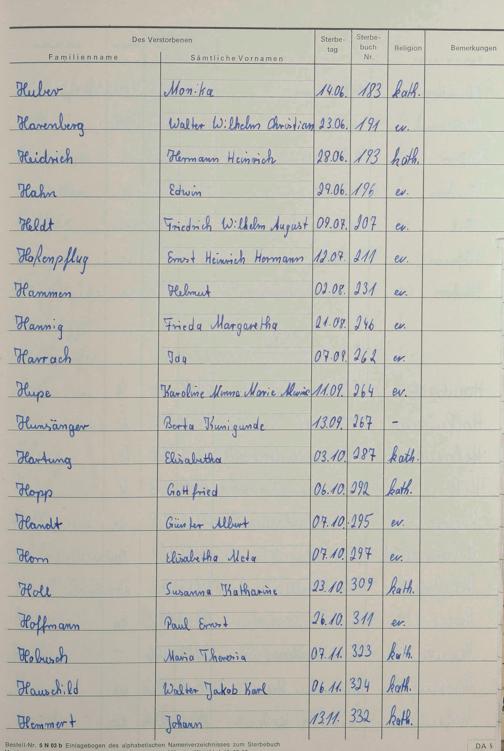 Des Verstorbenen Sterbe- Sterbe- Religion Bemerkungen
Familienname Sämtliche Vornamen tag buch Nr.
Huber Monika 14.06. 183 kath.
Harenberg Walter Wilhelm Christian 23.06. 191 ev.
Heidrich Hermann Heinrich 28.06. 193 kath.
Hahn Edwin 29.06. 196 ev.
Heldt Friedrich Wilhelm August 09.07. 207 ev.
Haßenpflug Ernst Heinrich Hermann 12.07. 211 ev.
Hammen Helmut 02.08. 231 ev.
Hannig Frieda Margaretha 21.08. 246 ev.
Harrach Ida 07.09. 262 ev.
Hupe Karoline Minna Marie 11.09. 264 ev.
Hunsänger Berta Kunigunde 13.09. 267 -
Hartung Elisabetha 03.10. 287 kath.
Hopp Gottfried 06.10. 292 kath.
Handt Günter Albert 07.10. 295 ev.
Horn Elisabetha Meta 07.10. 297 ev.
Holl Susanna Katharine 23.10. 309 kath.
Hoffmann Paul Ernst 26.10. 311 ev.
Hobusch Maria Theresia 07.11. 323 kath.
Hauschild Walter Jakob Karl 06.11. 324 kath.
Hemmert Johann 13.11. 332 kath.
Bestell-Nr. S N 03 b Einlagebogen des alphabetischen Namenverzeichnisses zum Sterbebuch DA